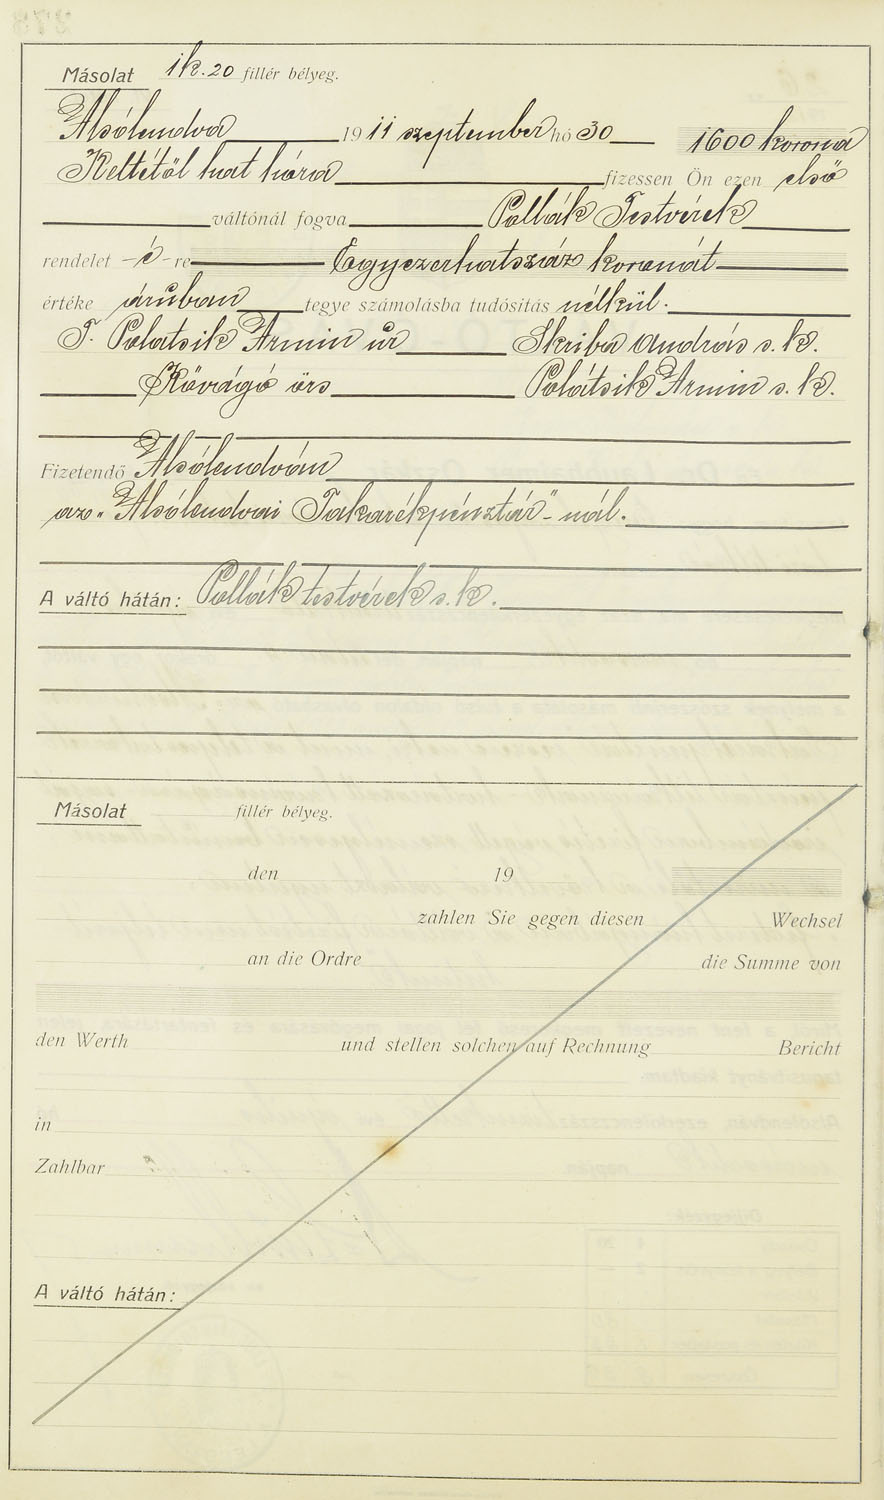 Másolat 1 k. 20 fillér bélyeg.
Alsólendva 1911 szeptember hó 30 1600 korona
Keltétől hat hóra fizessen Ön ezen első
váltónál fogva Pollák Testvérek
rendelet -é-re Egyezerhatszáz koronát
értéke áruban tegye számolásba tudósítás nélkül.
T. Polatsik Ármin úr Skriba András s. k.
Kővágó örs Polátsik Ármin s. k.
Fizetendő Alsólendván
az "Alsólendvai Takarékpénztár"-nál.
A váltó hátán: Pollák testvérek s. k.
Másolat fillér bélyeg.
den 19
zahlen Sie gegen diesen Wechsel
an die Ordre die Summe von
den Werth und stellen solchen auf Rechnung Bericht
in
Zahlbar
A váltó hátán: